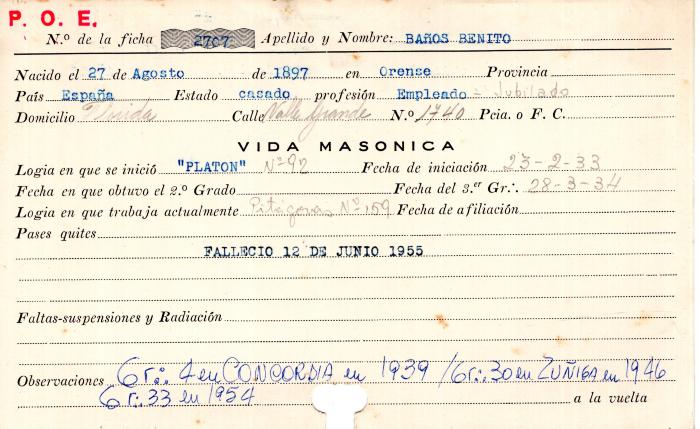 P. O. E.
N.º de la ficha 2707 Apellido y Nombre: BAÑOS BENITO
Nacido el 27 de Agosto de 1897 en Orense Provincia
País España Estado casado profesión Empleado = Jubilado
Domicilio Florida Calle Valle Grande N.º 1740 Pcia. o F. C.
VIDA MASONICA
Logia en que se inició "PLATON" Nº 92 Fecha de iniciación 23-2-33
Fecha en que obtuvo el 2.º Grado Fecha del 3.er Gr∴. 28-3-34
Logia en que trabaja actualmente Pitágoras Nº 159 Fecha de afiliación
Pases quites
FALLECIO 12 DE JUNIO 1955
Faltas-suspensiones y Radiación
Observaciones Gr∴ 4 en CONCORDIA en 1939 / Gr∴ 30 en ZUÑIGA en 1946
Gr∴ 33 en 1954 a la vuelta